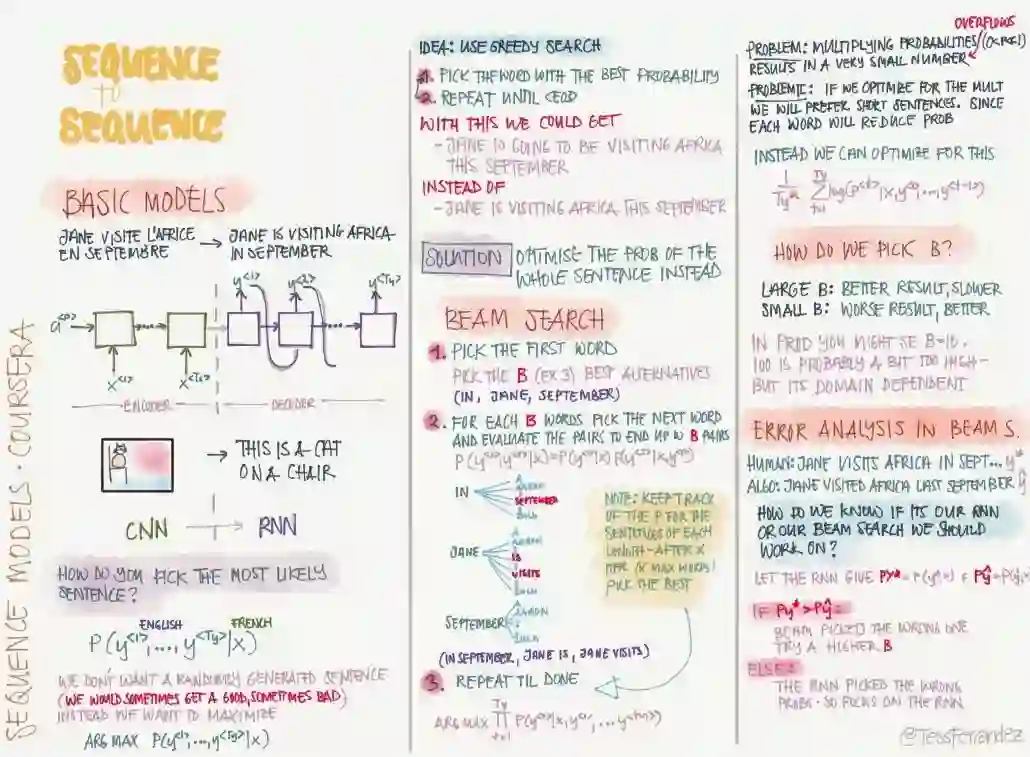 SEQUENCE
to
SEQUENCE
BASIC MODELS
JANE VISITE L'AFRICE
EN SEPTEMBRE
→ JANE IS VISITING AFRICA
IN SEPTEMBER
y<1> y<2> y<Ty>
a<0>
x<1> x<Tx>
ENCODER DECODER
→ THIS IS A CAT
ON A CHAIR
CNN → RNN
HOW DO YOU PICK THE MOST LIKELY
SENTENCE?
ENGLISH FRENCH
P(y<1>,...,y<Ty>|x)
WE DON'T WANT A RANDOMLY GENERATED SENTENCE
(WE WOULD SOMETIMES GET A GOOD, SOMETIMES BAD)
INSTEAD WE WANT TO MAXIMIZE
ARG MAX P(y<1>,...,y<Ty>|x)
SEQUENCE MODELS · COURSERA
IDEA: USE GREEDY SEARCH
1. PICK THE WORD WITH THE BEST PROBABILITY
2. REPEAT UNTIL <EOD
WITH THIS WE COULD GET
- JANE IS GOING TO BE VISITING AFRICA
THIS SEPTEMBER
INSTEAD OF
- JANE IS VISITING AFRICA THIS SEPTEMBER
SOLUTION OPTIMISE THE PROB OF THE
WHOLE SENTENCE INSTEAD
BEAM SEARCH
1. PICK THE FIRST WORD
PICK THE B (EX 3) BEST ALTERNATIVES
(IN, JANE, SEPTEMBER)
2. FOR EACH B WORDS PICK THE NEXT WORD
AND EVALUATE THE PAIRS TO END UP W B PAIRS
P(y<1>,y<2>|x)=P(y<1>|x) P(y<2>|x,y<1>)
IN
A
SEPTEMBER
JANE
A
IS
VISITS
SEPTEMBER
A
NOTE: KEEP TRACK
OF THE P FOR THE
SENTENCES OF EACH
LENGTH - AFTER X
ITER (X MAX WORDS)
PICK THE BEST
(IN SEPTEMBER, JANE IS, JANE VISITS)
3. REPEAT TIL DONE
Ty
ARG MAX ∏ P(y<t>|x,y<1>,...y<t-1>)
t=1
OVERFLOWS
PROBLEM: MULTIPLYING PROBABILITIES (0<P<1)
RESULTS IN A VERY SMALL NUMBER
PROBLEM II: IF WE OPTIMIZE FOR THE MULT
WE WILL PREFER SHORT SENTENCES. SINCE
EACH WORD WILL REDUCE PROB
INSTEAD WE CAN OPTIMIZE FOR THIS
Ty
1/Ty^α Σ log(P<t>|x,y<1>,...,y<t-1>)
t=1
HOW DO WE PICK B?
LARGE B: BETTER RESULT, SLOWER
SMALL B: WORSE RESULT, BETTER
IN PROD YOU MIGHT SE B=10.
100 IS PROBABLY A BIT TOO HIGH -
BUT ITS DOMAIN DEPENDENT
ERROR ANALYSIS IN BEAM S.
HUMAN: JANE VISITS AFRICA IN SEPT... y*
ALGO: JANE VISITED AFRICA LAST SEPTEMBER ŷ
HOW DO WE KNOW IF ITS OUR RNN
OR OUR BEAM SEARCH WE SHOULD
WORK ON?
LET THE RNN GIVE Py* = P(y*|x) & Pŷ = P(ŷ|x
IF Py* > Pŷ =
BEAM PICKED THE WRONG ONE
TRY A HIGHER B
ELSE:
THE RNN PICKED THE WRONG
PROBS. SO FOCUS ON THE RNN
@TessFerrandez